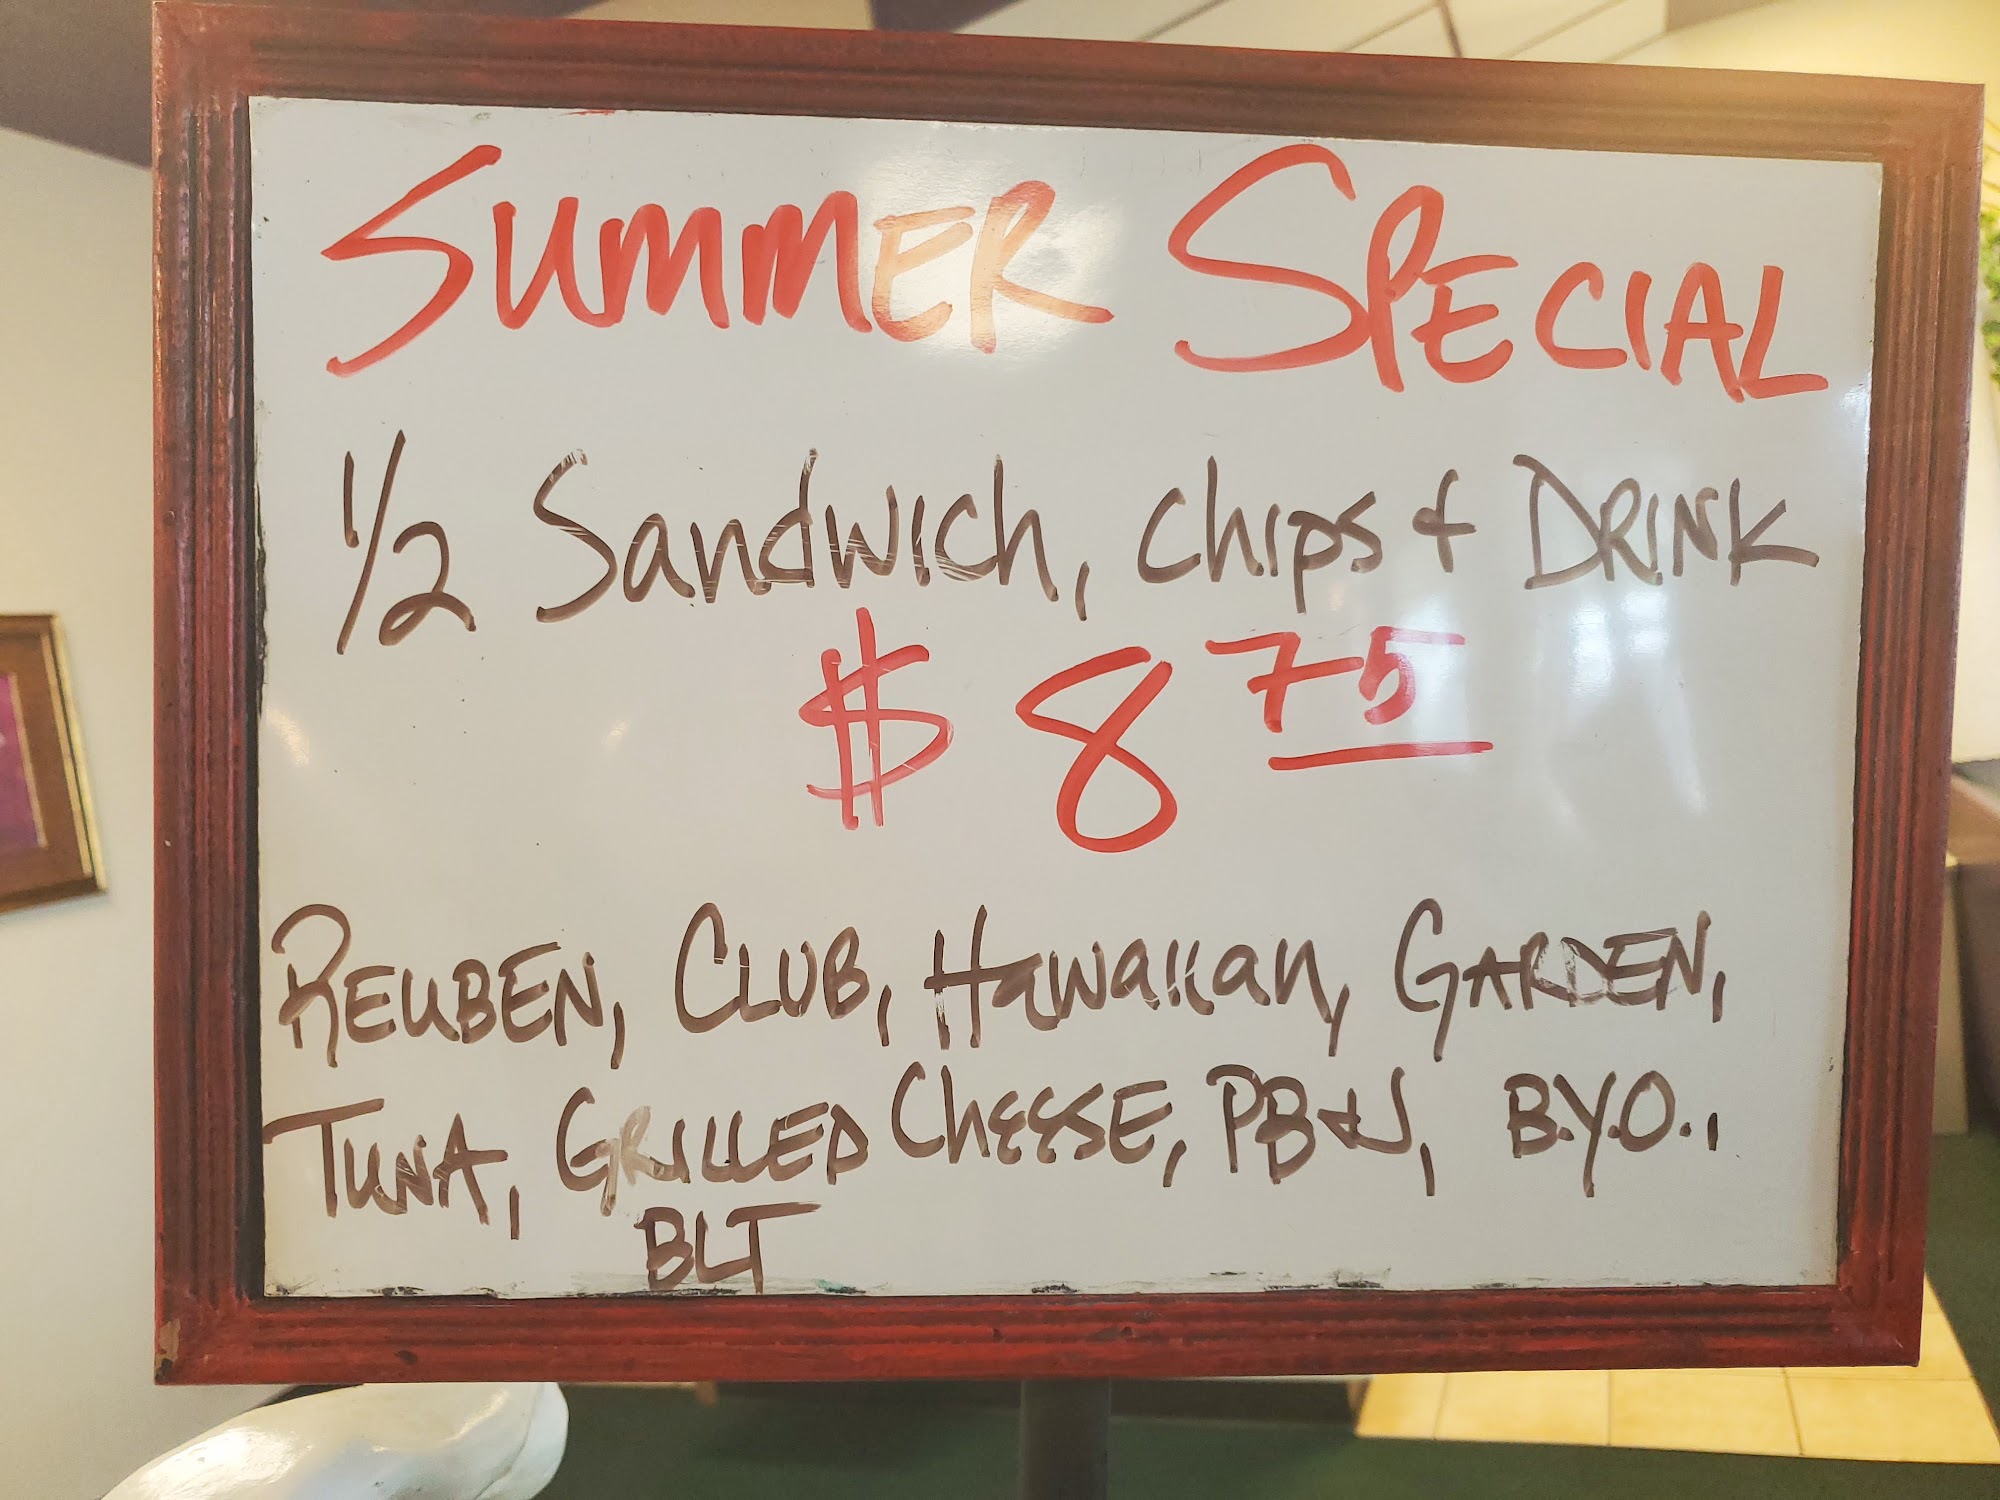 SUMMER SPECIAL
1/2 Sandwich, Chips & DRINK
$ 8 75
REUBEN, CLUB, Hawaiian, GARDEN,
TUNA, GRILLED CHEESE, PB&J, B.Y.O.,
BLT